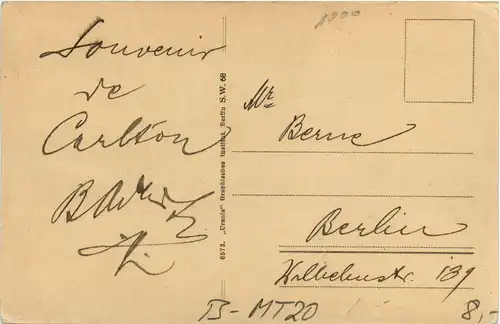 1000
Souvenir
de
Carlton
6573. „Urania" Graphisches Institut Berlin S.W. 68
Mr
Berne
Berlin
Wilhelmstr. 139
B-MT20
8,-